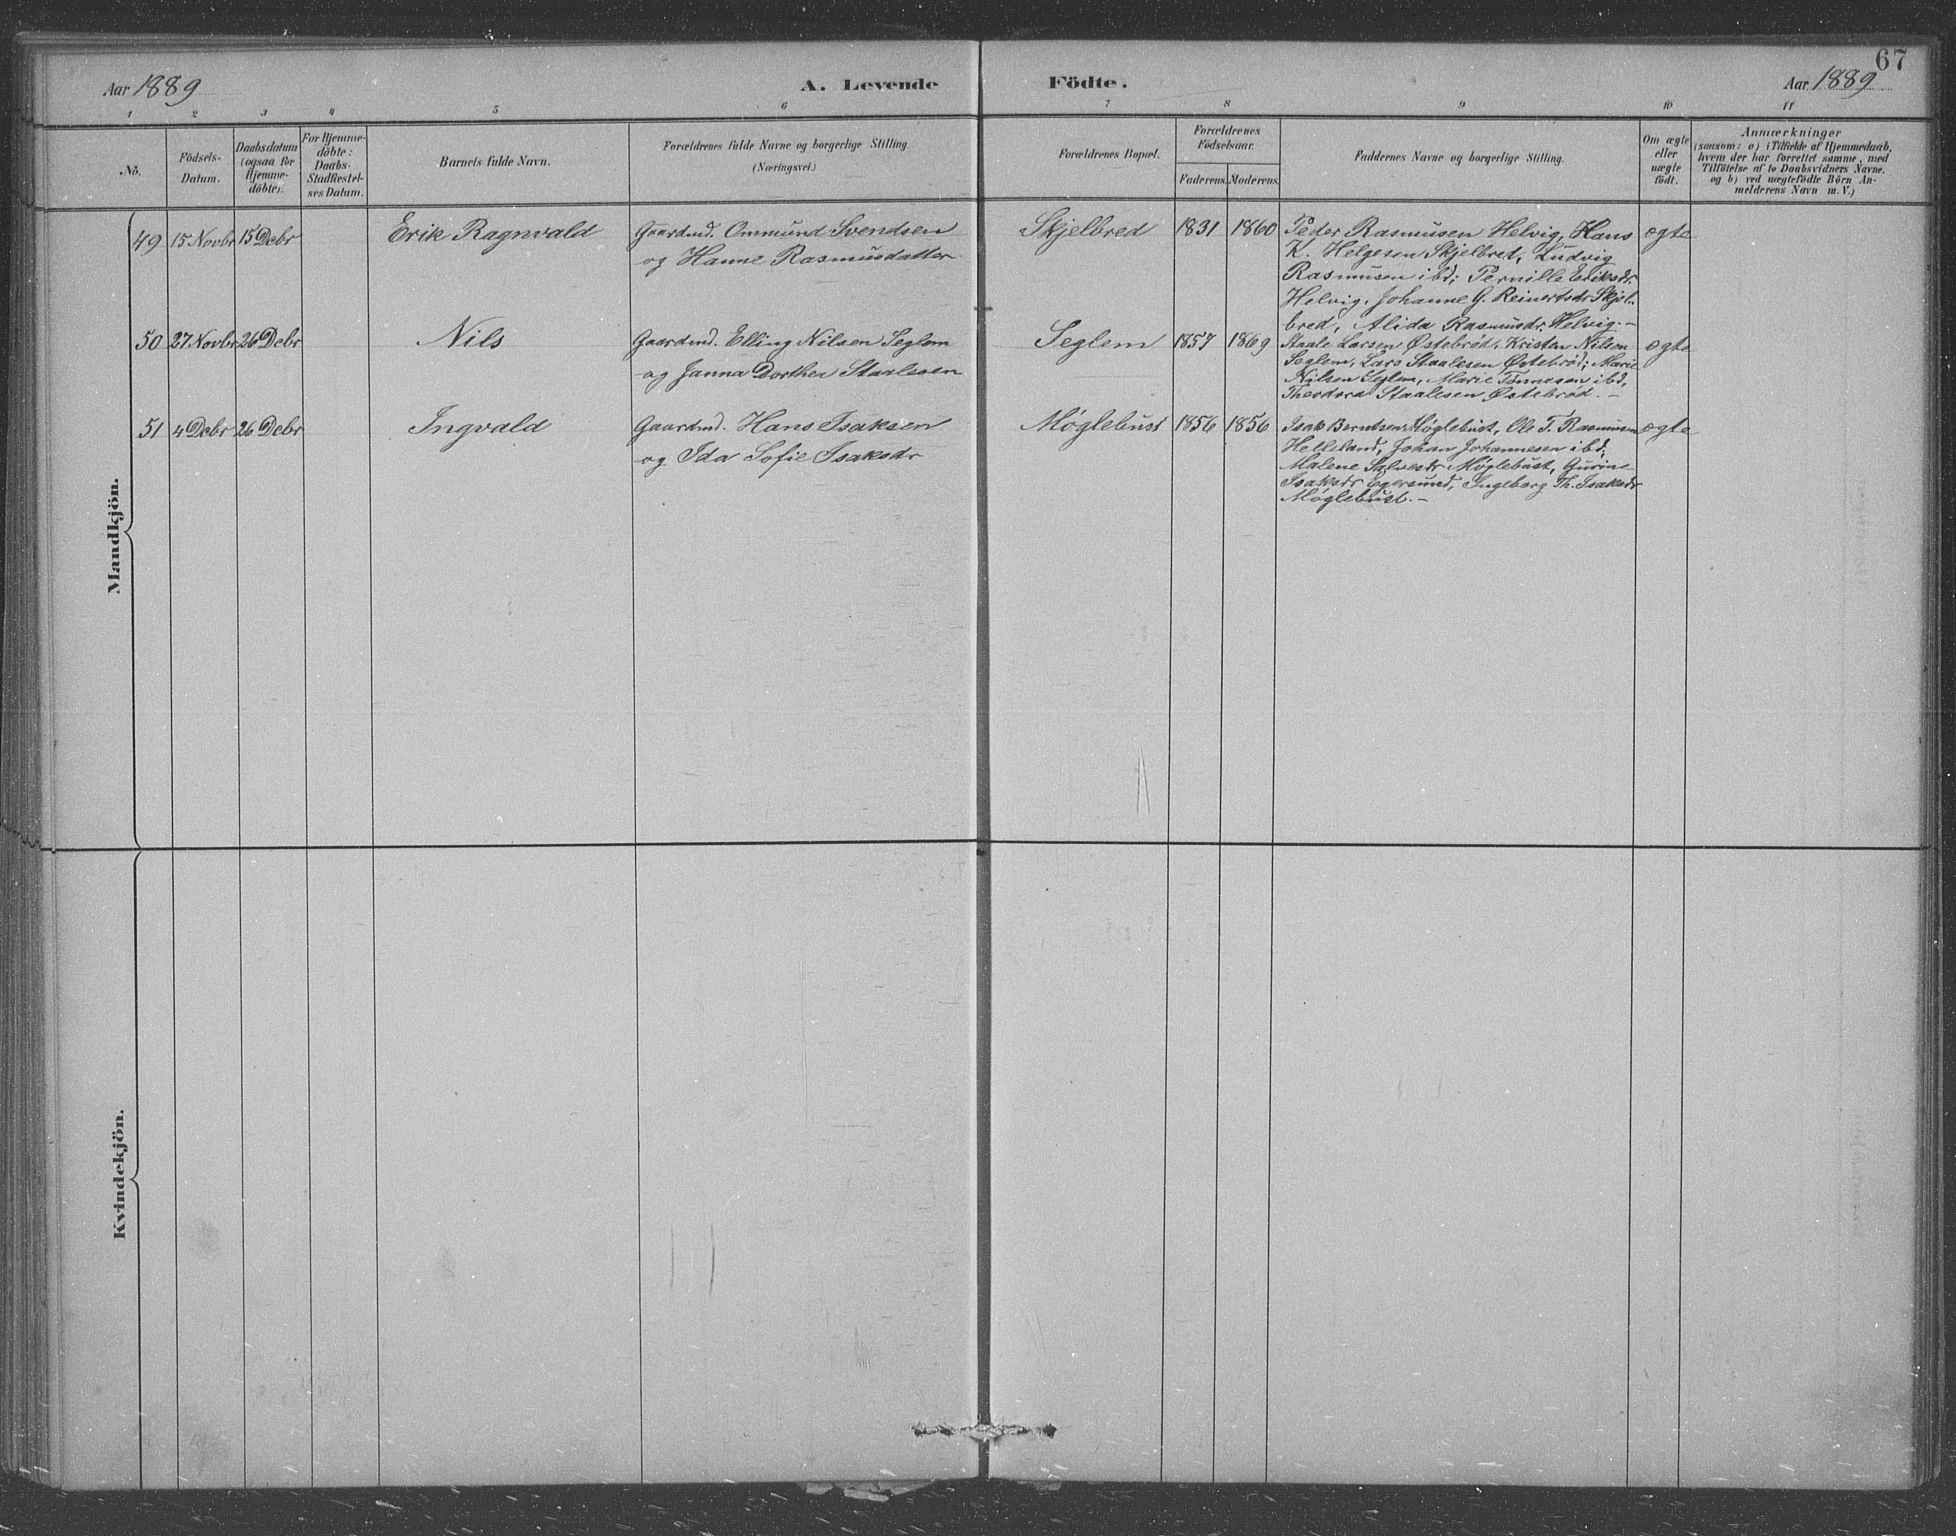 67
Aar 1889
A. Levende
Födte.
Aar 1889
1 2 3 4 5 6 7 8 9 10 11
No.
Födsels-
Datum.
Daabsdatum
(ogsaa for
Hjemme-
döbte).
For Hjemme-
döbte:
Daabs-
Stadfæstel-
ses Datum.
Barnets fulde Navn.
Forældrenes fulde Navne og borgerlige Stilling.
(Næringsvei.)
Forældrenes Bopæl.
Forældrenes
Födselsaar.
Faderens. Moderens.
Faddernes Navne og borgerlige Stilling.
Om ægte
eller
uægte
födt.
Anmærkninger
(saasom: a) i Tilfælde af Hjemmedaab,
hvem der har forrettet samme, med
Tilföielse af to Daabsvidners Navne.
og b) ved uægtefödte Börn An-
melderens Navn m. V.)
Mandkjön.
49 15 Novbr 15 Debr Erik Ragnvald Gaardmd. Ommund Svendsen
og Hanne Rasmusdatter
Skjelbred 1831 1860 Peder Rasmusen Helvig, Hans
K. Helgesen Skjelbret, Ludvig
Rasmusen ibd; Pernille Eriksdr.
Helvig, Johanne G. Reinertsdr Skjel-
bred, Alida Rasmusdr. Helvig.-
ægte
50 27 Novbr 26 Debr Nils Gaardmd. Elling Nilsen Seglem
og Janna Dorthea Staalesen
Seglem 1857 1869 Staale Larsen Østebrød, Kristen Nilsen
Seglem, Lars Staalesen Østebrød; Marie
Nilsen Seglem, Marie Tønnesen ibd,
Theodora Staalesen Østebrød.-
ægte
51 4 Debr 26 Debr Ingvald Gaardmd. Hans Isaksen
og Ida Sofie Isaksdr
Møglebust 1856 1856 Isak Berntsen Møglebust, Ole T. Rasmusen
Helleland, Johan Johannesen ibd,
Malene Salvesdr Møglebust, Gurine
Isaksdr Egersund, Ingeborg Th. Isaksdr
Møglebust.-
ægte
Kvindekjön.